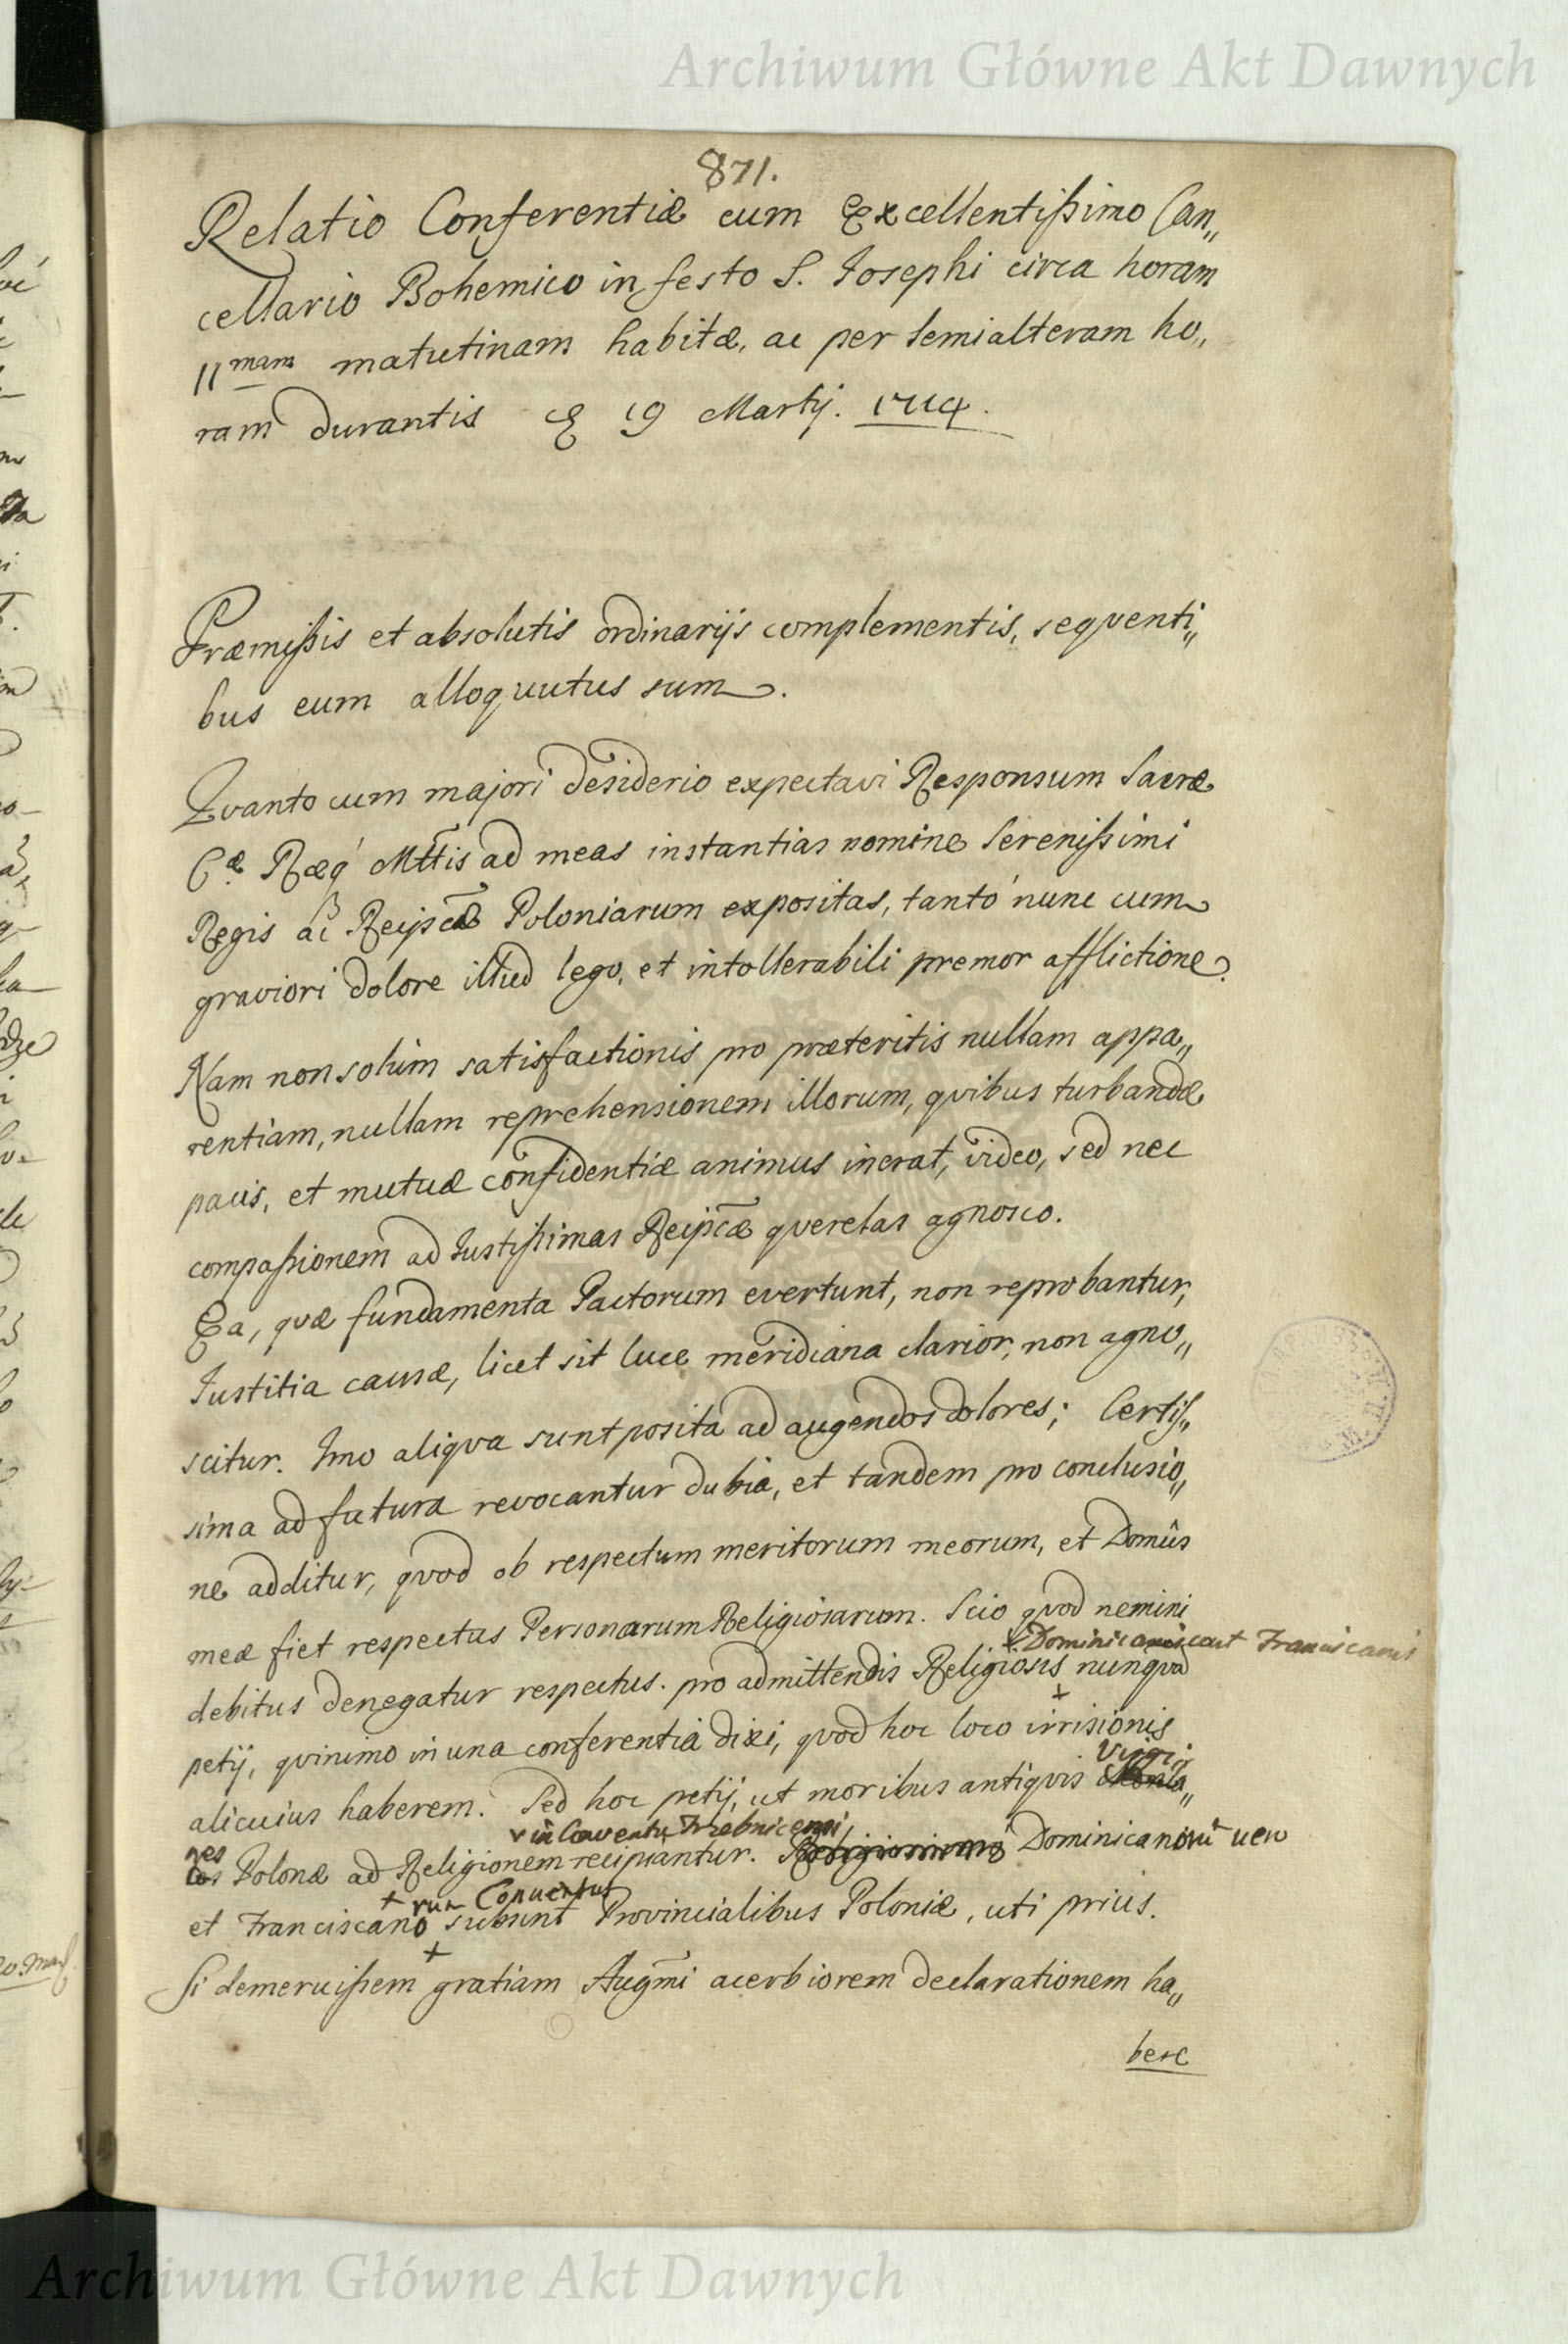 Archiwum Główne Akt Dawnych
871.
Relatio Conferentiæ cum Excellentißimo Can„
cellario Bohemico in festo S. Josephi circa horam
11mam matutinam habitæ, ac per semialteram ho„
ram durantis 19 Martij. 1714.
Præmißis et absolutis ordinarijs complementis, seqventi„
bus eum alloquutus sum.
Qvanto cum majori desiderio expectavi Responsum Sacræ
Cæ Ræq Mttis ad meas instantias nomine Serenißimi
Regis ac Reipcæ Poloniarum expositas, tantó nunc cum
graviori dolore illud lego, et intollerabili premor afflictione.
Nam non solùm satisfactionis pro præteritis nullam appa„
rentiam, nullam reprehensionem illorum, qvibus turbandæ
pacis, et mutuæ confidentiæ animus inerat, video, sed nec
compaßionem ad Iustißimas Reipcæ qverelas agnosco.
Ea, qvæ fundamenta Pactorum evertunt, non reprobantur,
Iustitia causæ, licet sit luce meridiana clarior, non agno„
scitur. Imo aliqva sunt posita ad augendos dolores; Certiß„
sima ad futura revocantur dubia, et tandem pro conclusio„
ne additur, qvod ob respectum meritorum meorum, et Domûs
meæ fiet respectus Personarum Religiosarum. Scio qvod nemini
Dominicanis aut Franciscanis
debitus denegatur respectus. pro admittendis Religiosis nunqvã
petij, qvinimo in una conferentiâ dixi, qvod hoc loco irrisionis
alicuius haberem. Sed hoc petij, ut moribus antiqvis Virgi
nes Polonæ ad Religionem recipiantur. Dominicanorũ uero
in Conventu Trebnicensi
et Franciscano rum Conuentus subsunt Provincialibus Poloniæ, uti priùs.
Si demeruißem gratiam Augmi acerbiorem declarationem ha„
bere
Archiwum Główne Akt Dawnych